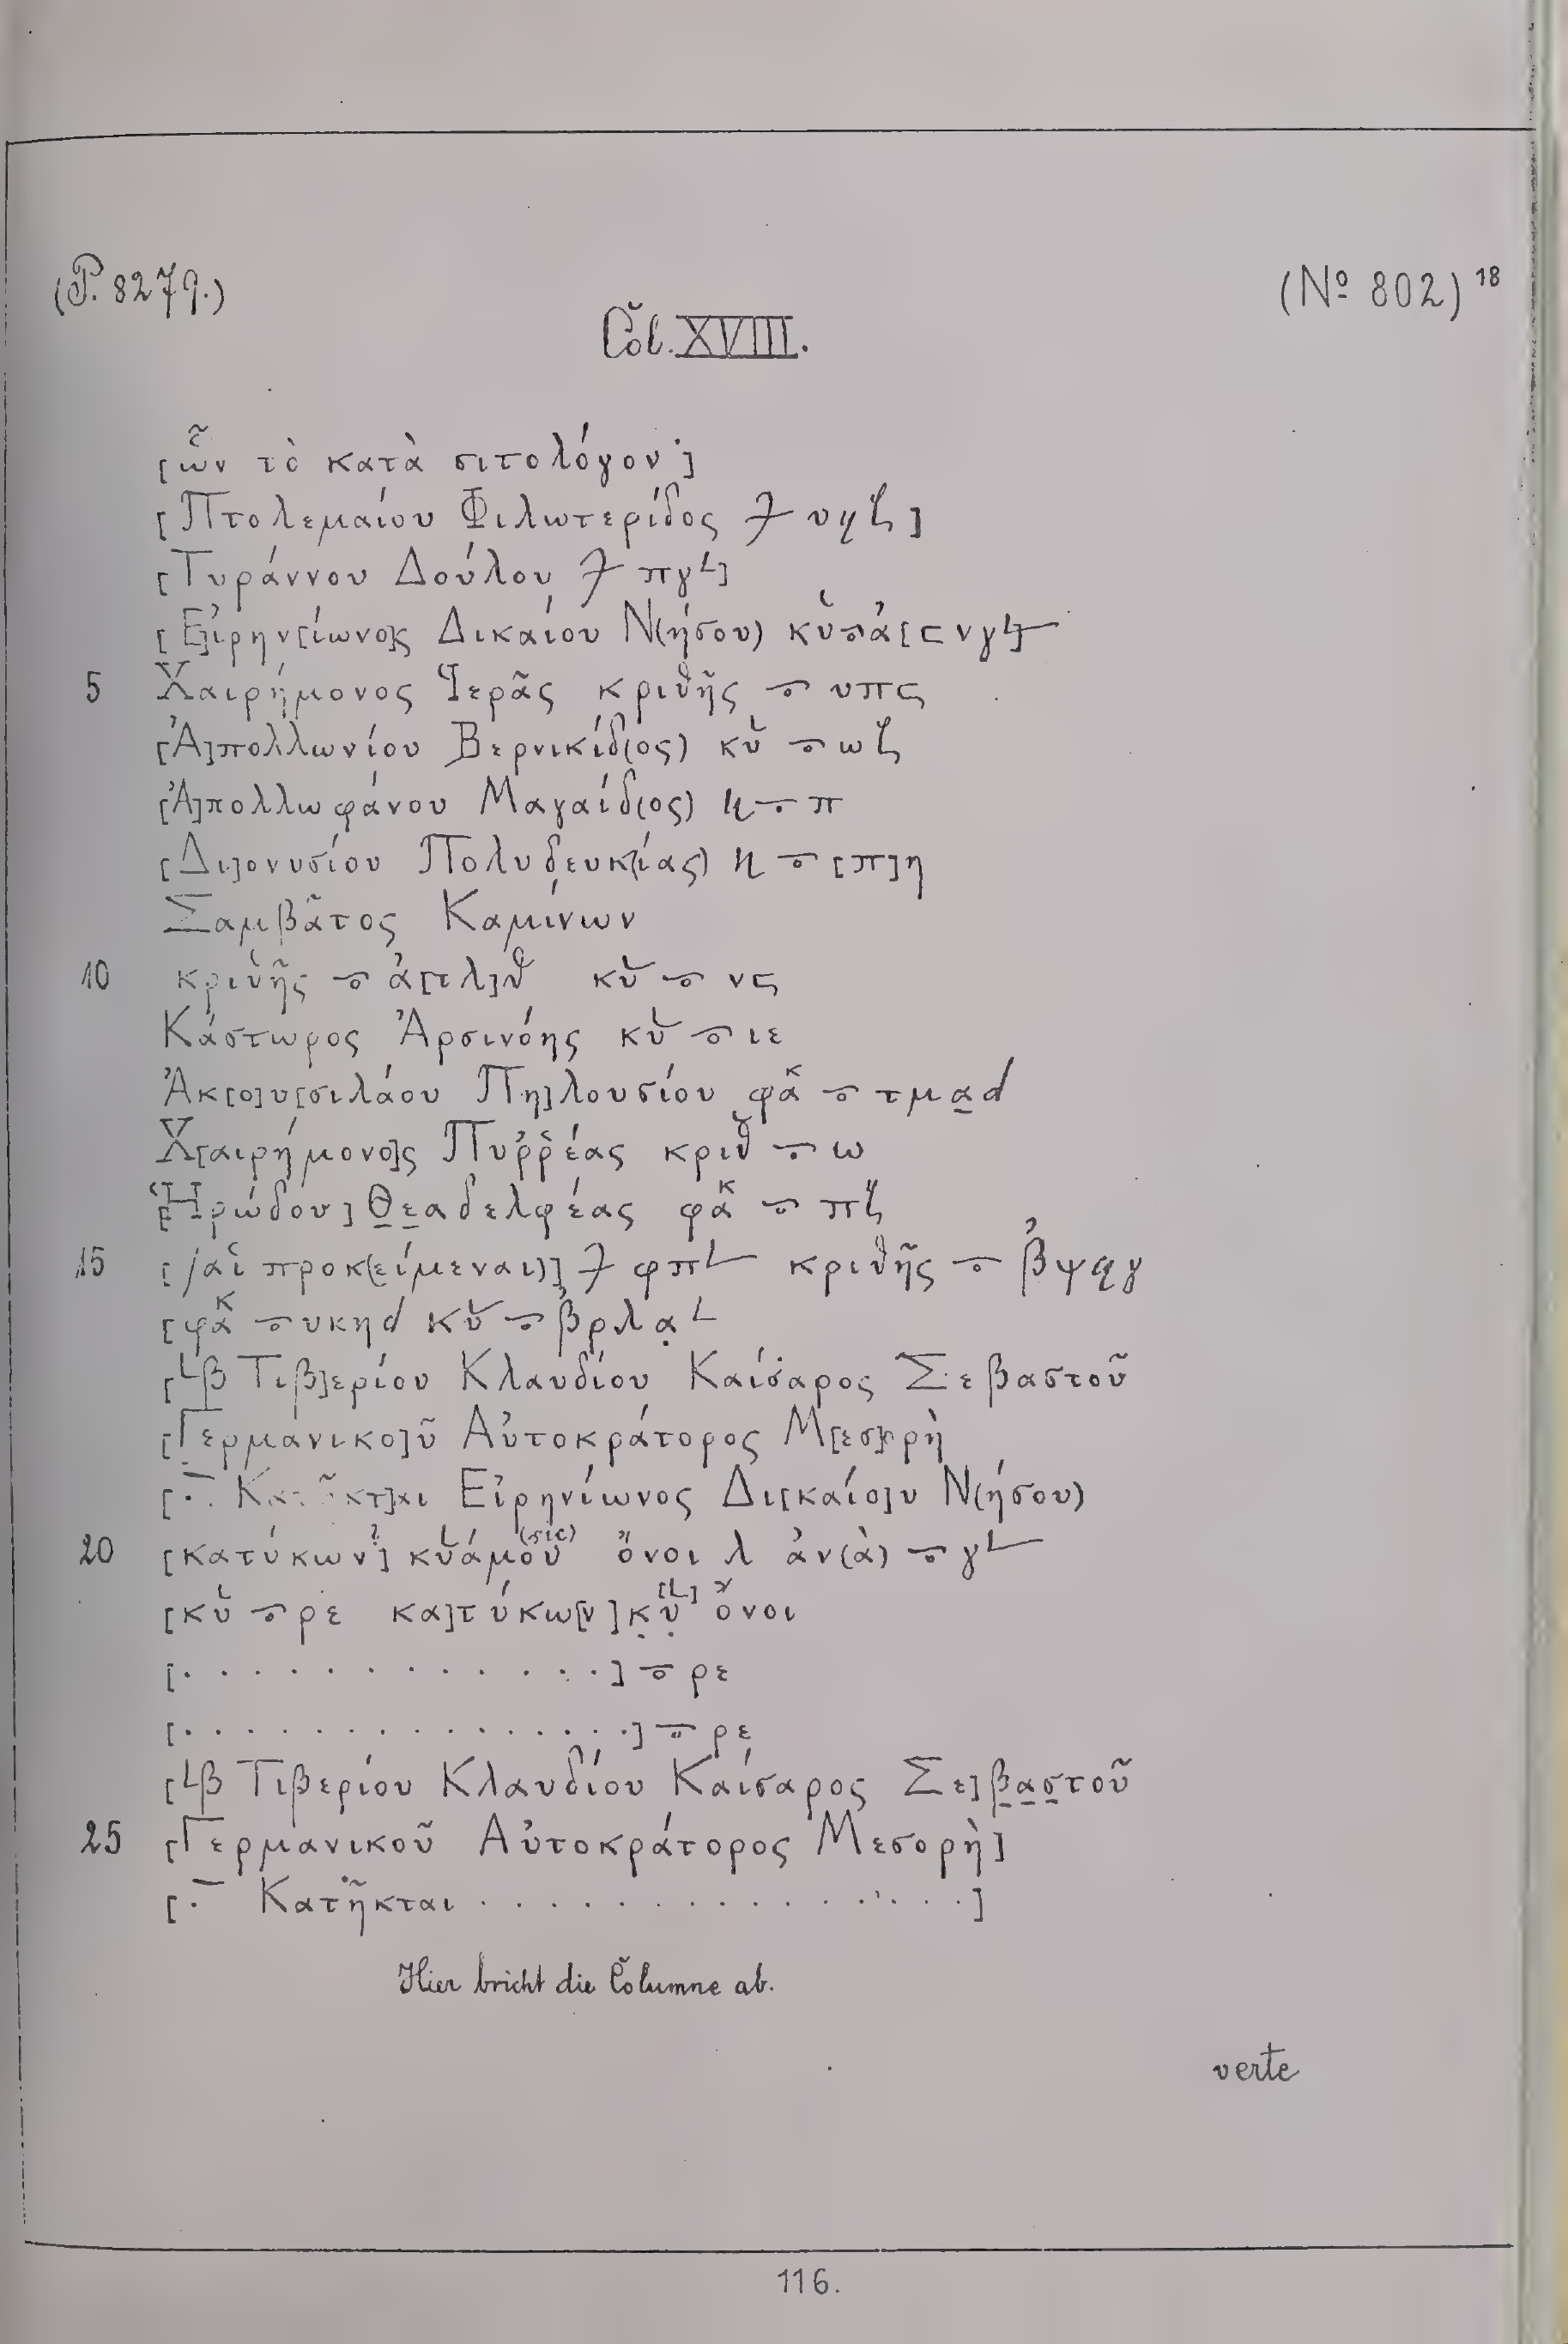 (P. 8279.)
(Nº 802) 18
Col. XVIII.
[ὧν τὸ κατὰ σιτολόγον·]
[Πτολεμαίου Φιλωτερίδος 𐅾 υϙζ]
[Τυράννου Δούλου 𐅾 πγ𐅵]
[Ε]ἰρην[ίωνο]ς Δικαίου Ν(ήσου) κύ ⨪ ἀ[ϲνγ𐅵]
5 Χαιρήμονος Ἱερᾶς κριθῆς ⨪ υπϛ
[Ἀ]πολλωνίου Βερνικίδ(ος) κύ ⨪ ωζ
[Ἀ]πολλωφάνου Μαγαίδ(ος) ⨪ π
[Δι]ονυσίου Πολυδευκ(ίας) ⨪ [π]η
Σαμβᾶτος Καμίνων
10 κριθῆς ⨪ ἀ[τλ]θ κύ ⨪ νϛ
Κάστωρος Ἀρσινόης κύ ⨪ ιε
Ἀκ[ο]υ[σιλάου Πη]λουσίου φακ ⨪ τμα̣d
Χ[αιρήμονο]ς Πυῤῥέας κριθ ⨪ ω
[Ἡρώδου] Θ̣ε̣αδελφέας φακ ⨪ πζ
15 [/αἱ προκ(είμεναι)] 𐅾 φπ𐅵 κριθῆς ⨪ βψϙγ
[φακ ⨪ υκηd κύ ⨪ βρλα̣𐅵
[𐅹β Τιβ]ερίου Κλαυδίου Καίσαρος Σεβαστοῦ
[Γερμανικο]ῦ Αὐτοκράτορος Μ[εσ]ορὴ
[.̅ Κατῆκτ]αι Εἰρηνίωνος Δι[καίο]υ Ν(ήσου)
20 [κατύκων?] κυάμου (sic) ὄνοι λ ἀν(ὰ) ⨪ γ𐅵
[κύ ⨪ ρε κα]τύκω[ν] κ̣ύ̣ ὄνοι
[. . . . . . . . . . . . . .] ⨪ ρε
[. . . . . . . . . . . . . . .] ⨪ ρε
[𐅹β Τιβερίου Κλαυδίου Καίσαρος Σε]β̣α̣σ̣τοῦ
25 [Γερμανικοῦ Αὐτοκράτορος Μεσορὴ]
[.̅ Κατῆκται . . . . . . . . . . . . . . .]
Hier bricht die Columne ab.
verte
116.